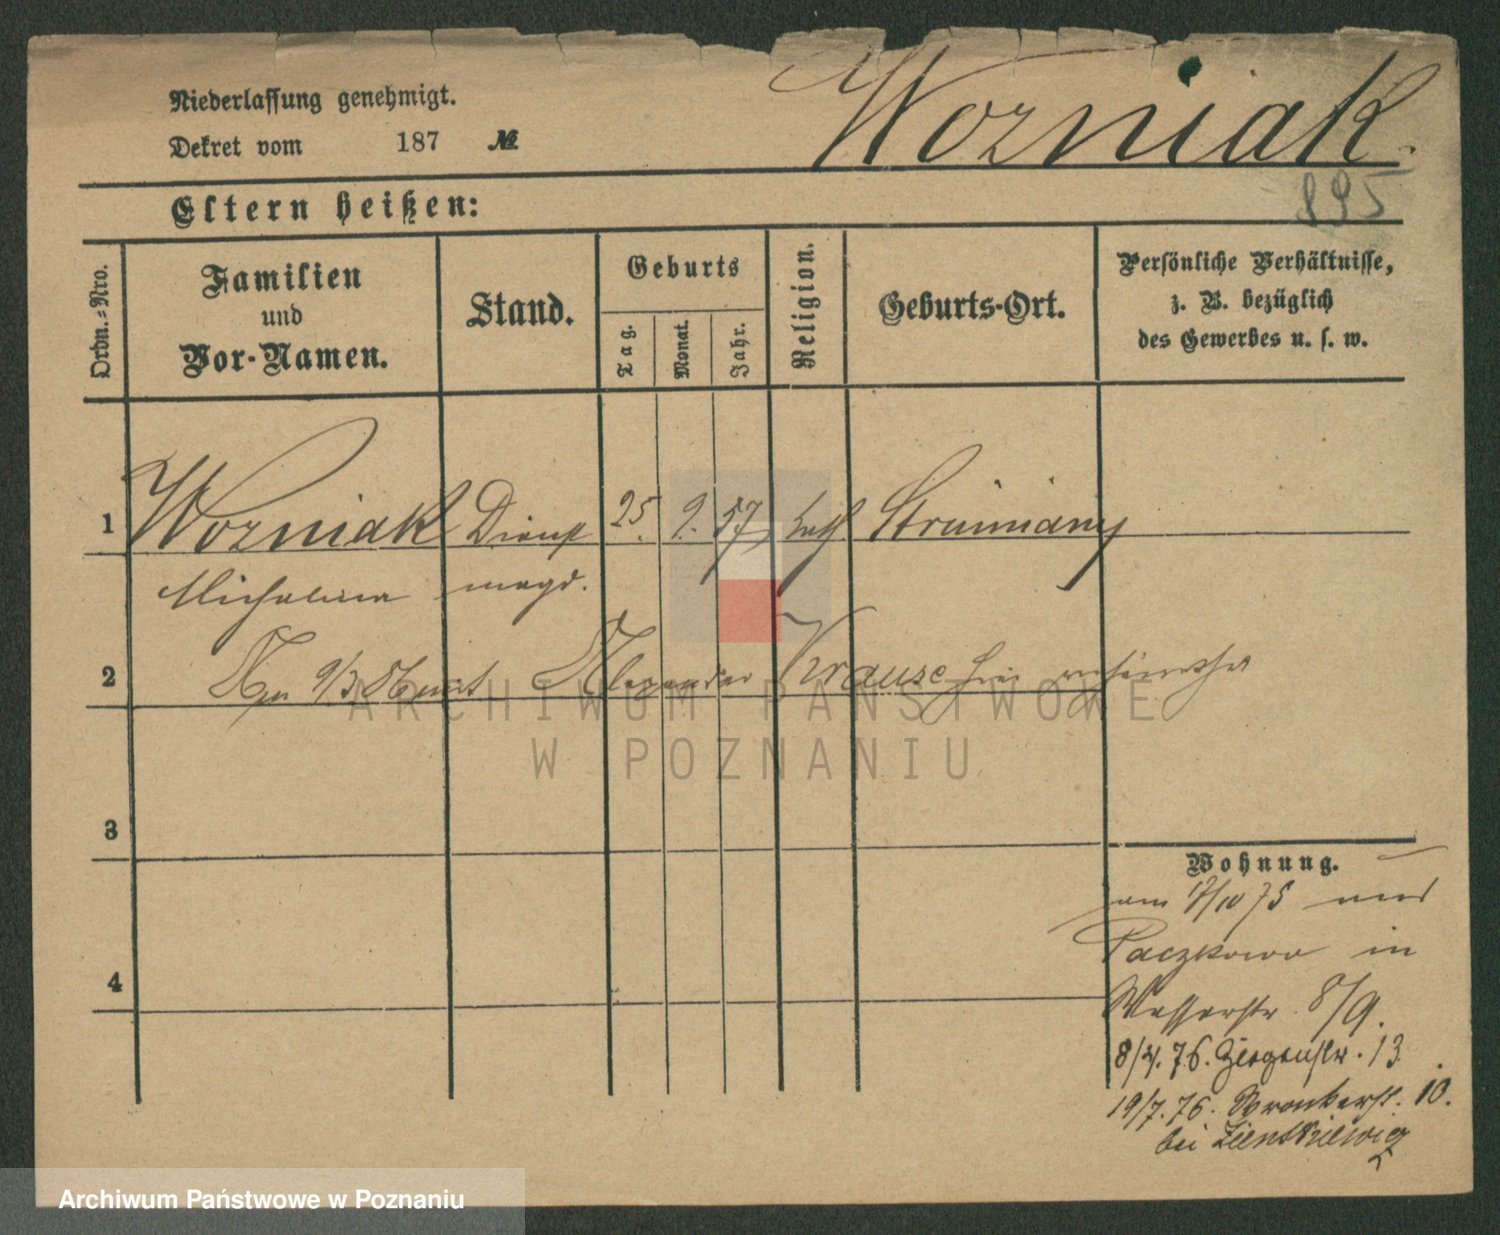 Niederlassung genehmigt.
Dekret vom 187 №
Wozniak.
895
Eltern heißen:
Ordn.-Nro.
Familien
und
Vor-Namen.
Stand.
Geburts
Tag.
Monat.
Jahr.
Religion.
Geburts-Ort.
Persönliche Verhältnisse,
z. B. bezüglich
des Gewerbes u. s. w.
1 Wozniak Dienst 25. 9. 57 kath Strumiany
Michalina magd.
2 9/3 86 mit Alexander Krause hier verheirathet
3
4
Wohnung.
am 17/10 75 aus
Paczkowo in
Wasserstr. 8/9.
8/4. 76. Ziegenstr. 13
19/7. 76. Wronkerstr. 10.
bei Zientkiewicz
ARCHIWUM PAŃSTWOWE
W POZNANIU
Archiwum Państwowe w Poznaniu